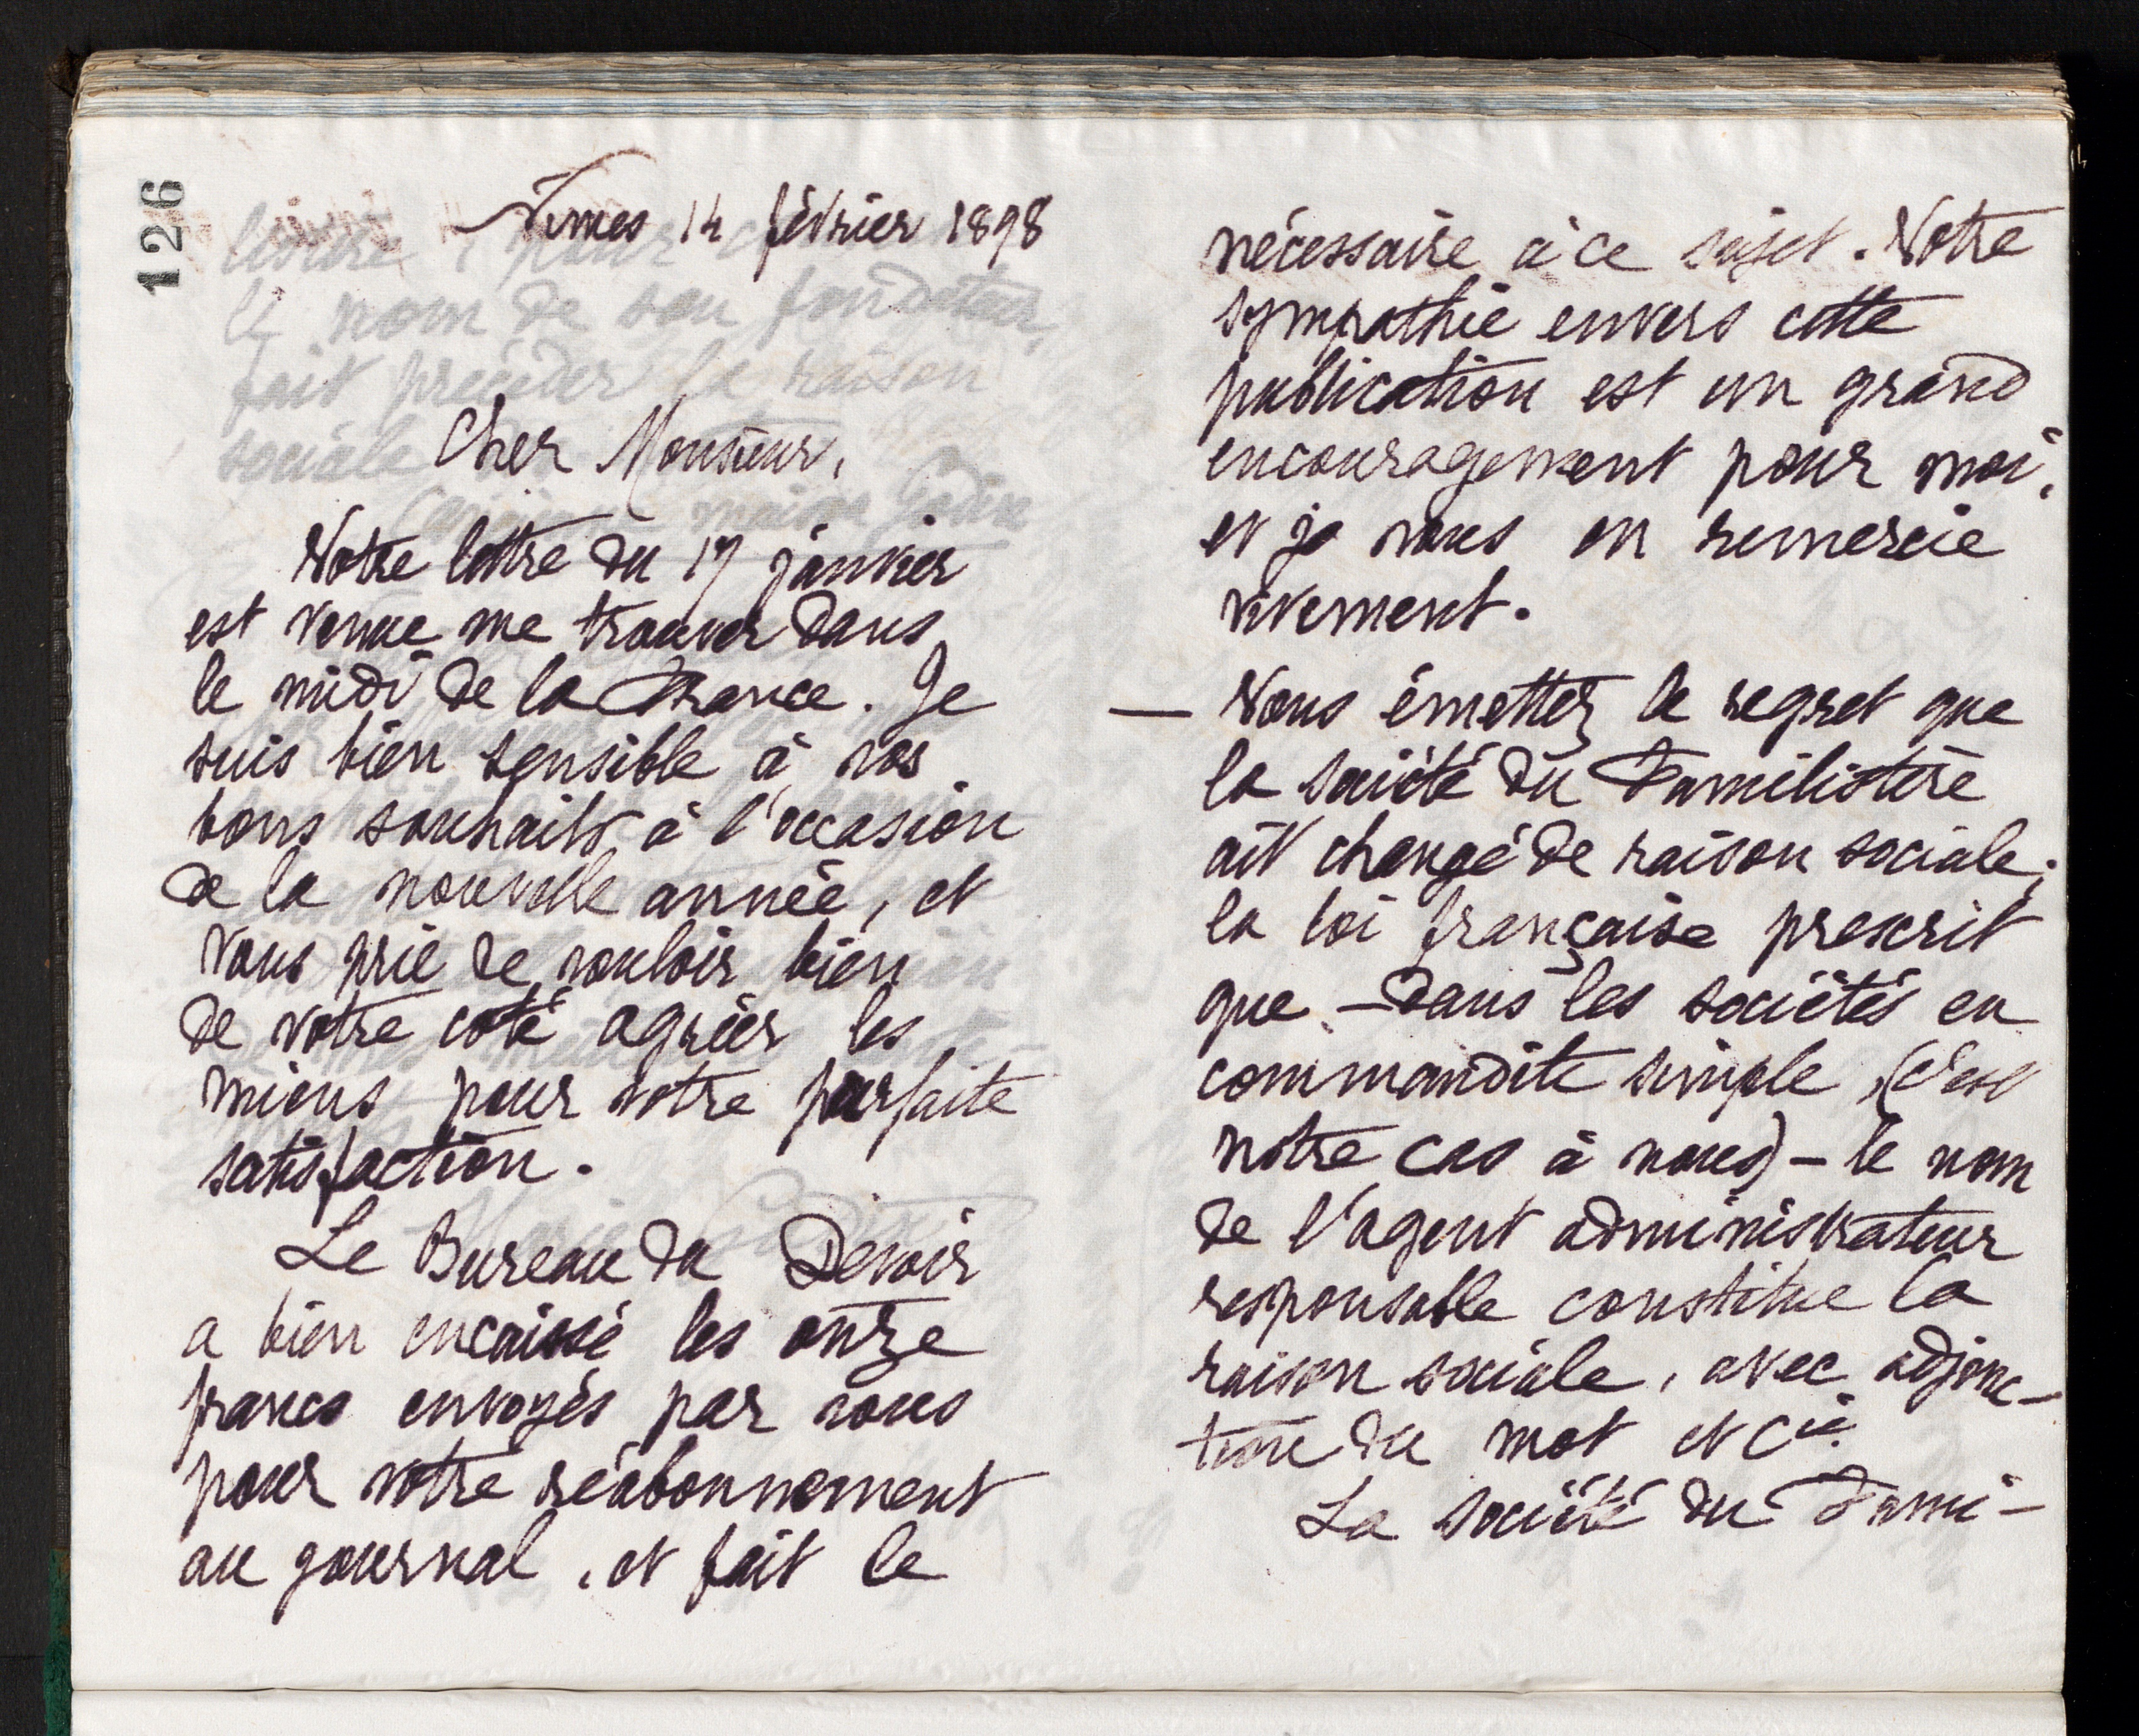 126
Nîmes 14 février 1898
Cher Monsieur,
Votre lettre du 17 janvier
est venue me trouver dans
le midi de la France. Je
suis bien sensible à vos
bons souhaits à l'occasion
de la nouvelle année, et
vous prie de vouloir bien
de votre coté agréer les
miens pour votre parfaite
satisfaction.
Le Bureau du Devoir
a bien encaissé les onze
francs envoyés par vous
pour votre réabonnement
au journal, et fait le
nécessaire à ce sujet. Votre
sympathie envers cette
publication est un grand
encouragement pour moi,
et je vous en remercie
vivement.
— Vous émettez le regret que
la société du Familistère
ait changé de raison sociale;
la loi française prescrit
que - dans les sociétés en
commandite simple, (c'est
notre cas à nous) - le nom
de l'agent administrateur
responsable constitue la
raison sociale, avec adjonc-
tion du mot et Cie.
La société du Fami-